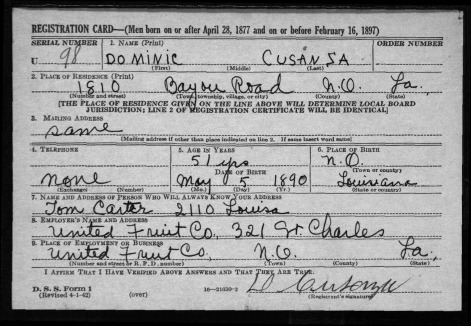 REGISTRATION CARD—(Men born on or after April 28, 1877 and on or before February 16, 1897)
SERIAL NUMBER 1. NAME (Print) ORDER NUMBER
U 98 DOMINIC CUSANZA
(First) (Middle) (Last)
2. PLACE OF RESIDENCE (Print)
1810 Bayou Road N.O. La.
(Number and street) (Town, township, village, or city) (County) (State)
[THE PLACE OF RESIDENCE GIVEN ON THE LINE ABOVE WILL DETERMINE LOCAL BOARD
JURISDICTION; LINE 2 OF REGISTRATION CERTIFICATE WILL BE IDENTICAL]
3. MAILING ADDRESS
same
[Mailing address if other than place indicated on line 2. If same insert word same]
4. TELEPHONE 5. AGE IN YEARS 6. PLACE OF BIRTH
51 yrs N.O.
DATE OF BIRTH (Town or county)
none May 5 1890 Louisiana
(Exchange) (Number) (Mo.) (Day) (Yr.) (State or country)
7. NAME AND ADDRESS OF PERSON WHO WILL ALWAYS KNOW YOUR ADDRESS
Tom Carter 2110 Louisa
8. EMPLOYER'S NAME AND ADDRESS
United Fruit Co, 321 St Charles
9. PLACE OF EMPLOYMENT OR BUSINESS
United Fruit Co, N.O. La,
(Number and street or R. F. D. number) (Town) (County) (State)
I AFFIRM THAT I HAVE VERIFIED ABOVE ANSWERS AND THAT THEY ARE TRUE.
D. S. S. Form 1
(Revised 4-1-42) (over) 16—21630-2 (Registrant's signature)